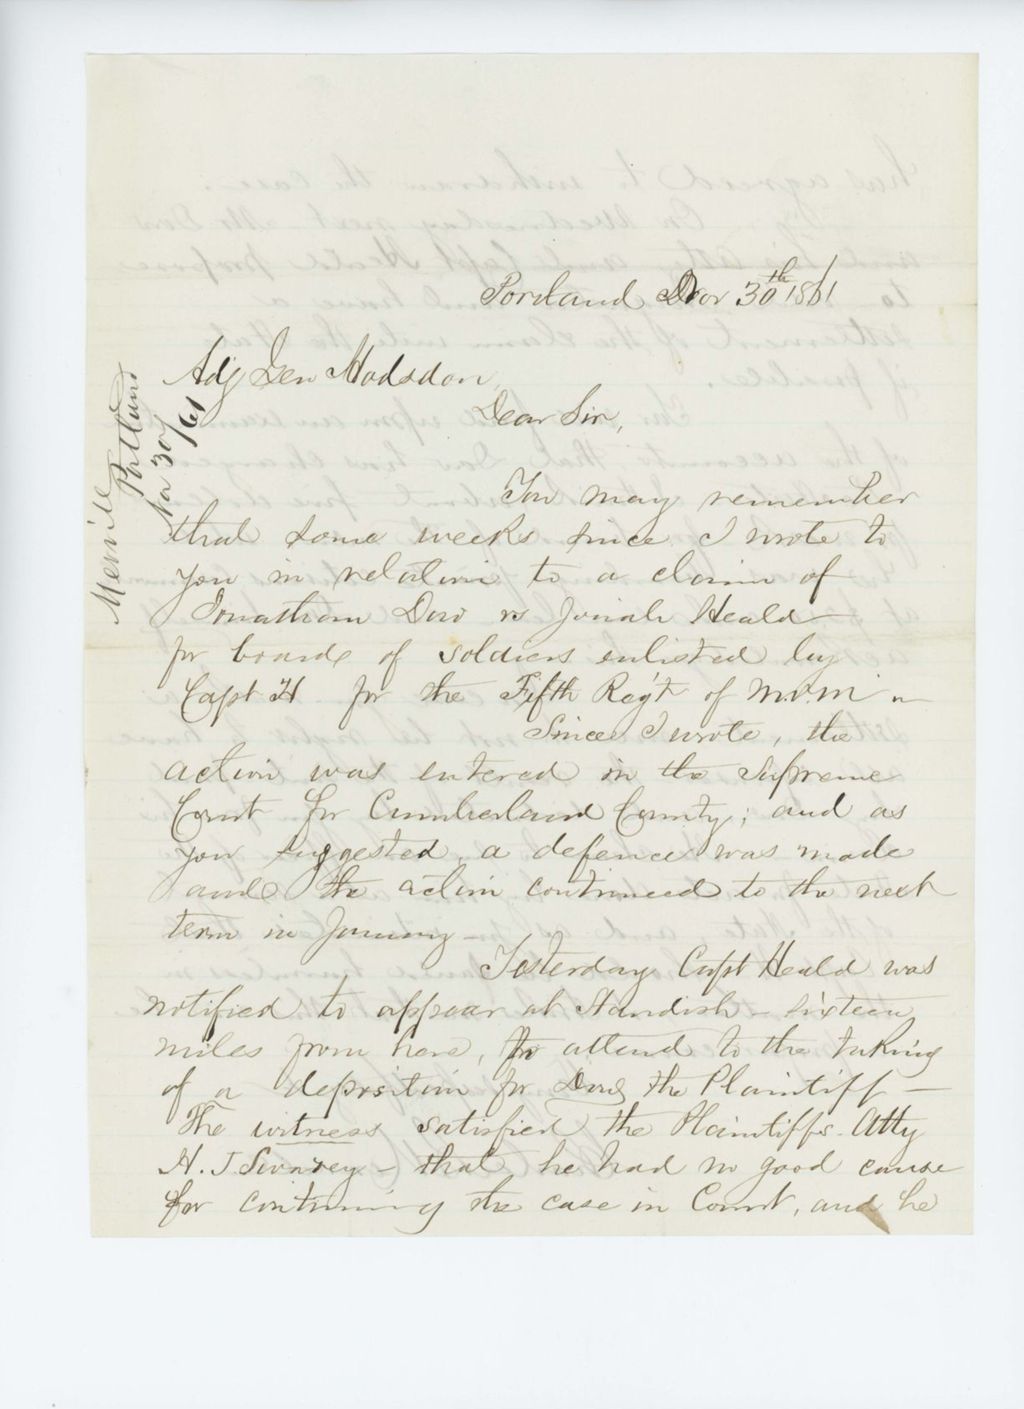 Portland Nov 30th 1861
Adj Gen Hodsdon,
Dear Sir,
Merrill
Portland
Nov 30/61
You may remember
that some weeks since I wrote to
you in relation to a claim of
Jonathan Dow vs Josiah Heald
for board of soldiers enlisted by
Capt H for the Fifth Reg't of M.V.M -
Since I wrote, the
action was entered in the Supreme
Court for Cumberland County; and as
you suggested, a defence was made
and the action continued to the next
term in January -
Yesterday Capt Heald was
notified to appear at Standish - sixteen
miles from here, to attend to the taking
of a deposition for Dow, the Plaintiff -
The witness satisfied the Plaintiffs Atty
H. J Swasey - that he had no good cause
for continuing the case in Court, and he